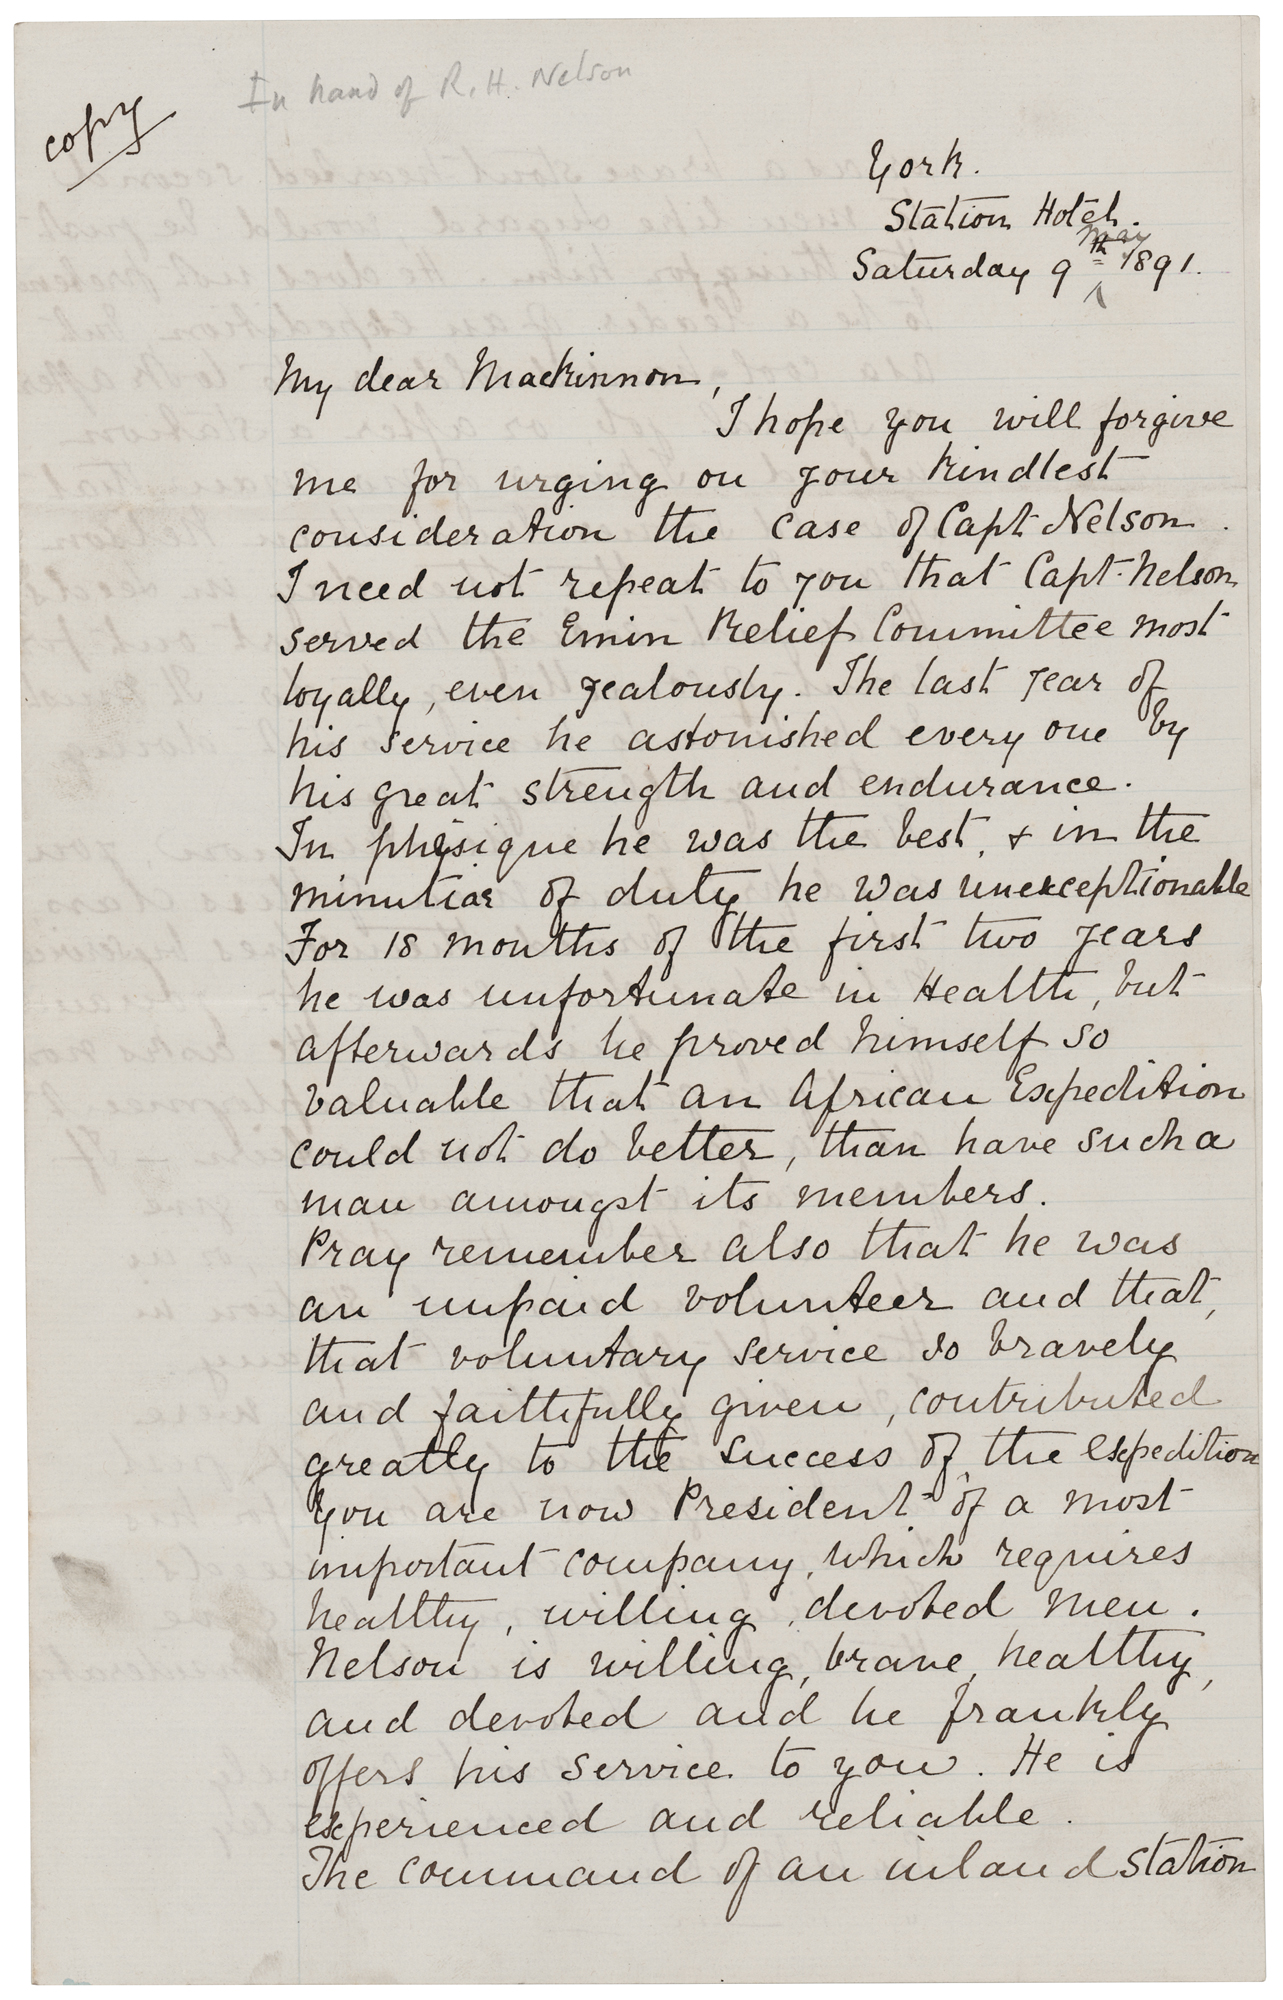 In hand of R. H. Nelson
copy
York.
Station Hotel.
May
Saturday 9th 1891.
My dear Mackinnon,
I hope you will forgive
me for urging on your kindlest
consideration the case of Capt Nelson.
I need not repeat to you that Capt. Nelson
served the Emin Relief Committee most
loyally, even zealously. The last year of
his service he astonished every one by
his great strength and endurance.
In physique he was the best, & in the
minutiae of duty he was unexceptionable
For 18 months of the first two years
he was unfortunate in Health, but
afterwards he proved himself so
valuable that an African Expedition
could not do better, than have such a
man amongst its members.
Pray remember also that he was
an unpaid volunteer and that,
that voluntary service so bravely
and faithfully given, contributed
greatly to the success of the expedition
You are now President of a most
important company, which requires
healthy, willing, devoted men.
Nelson is willing, brave, healthy,
and devoted and he frankly
offers his service to you. He is
experienced and reliable.
The command of an inland station